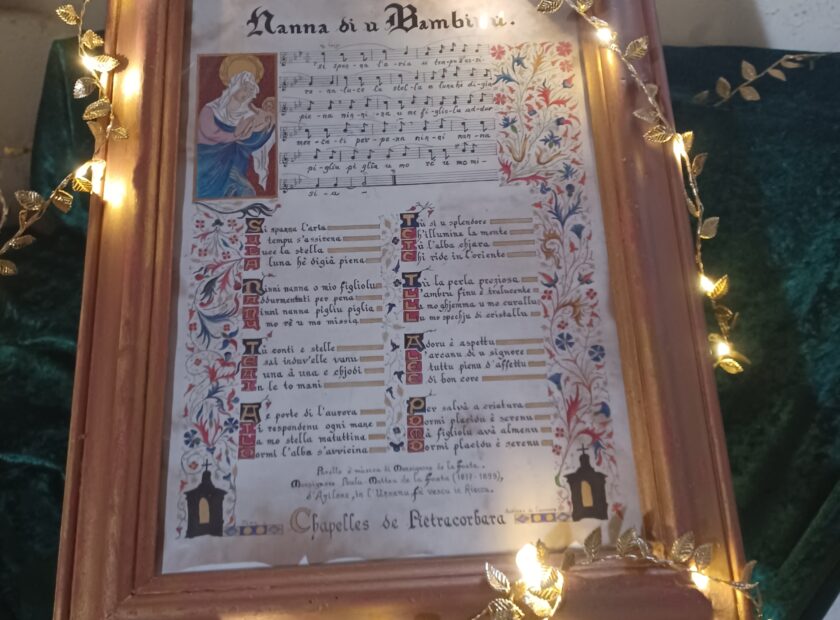 Nanna di u Bambinu.
si span-na l'a-ria u tempu
re-na lu-ce la stel-la a luna hè di-già
pie-na nin-ni-na u me fi-gliu-lu ad-dor
men-ta-ti per pe-na nin-ni nan-na
pi-gliu pi-gliu u mo rè u mo mi-
si-a
Si spanna l'aria
U tempu s'assirena
Luce la stella
A luna hè digià piena
Ninni nanna o mio figliolu
Addurmentati per pena
Ninni nanna pigliu piglia
U mo rè u mo missia
Tù conti e stelle
E sai induv'elle vanu
A una à una e chjodi
In le to mani
A e porte di l'aurora
Ti respondenu ogni mane
La mo stella matuttina
Dormi l'alba s'avvicina
Tù si u splendore
Ch'illumina la mente
Tù l'alba chjara
Chi ride in l'oriente
Tù la perla preziosa
L'ambru finu è tralucente
La mo ghjemma u mo curallu
Lu mo spechju di cristallu
Adoru è aspettu
L'arcanu di u signore
E tuttu pienu d'affettu
E di bon core
Per salvà a criatura
Dormi placidu è serenu
Mà figliolu avà almenu
Dormi placidu è serenu
Parolle è musica di Monsignore de la Foata.
Monsignore Paulu Matteu de la Foata (1817-1899),
d'Azilone, in l'Urnanu fù vescu in Aiacciu.
Chapelles de Pietracorbara